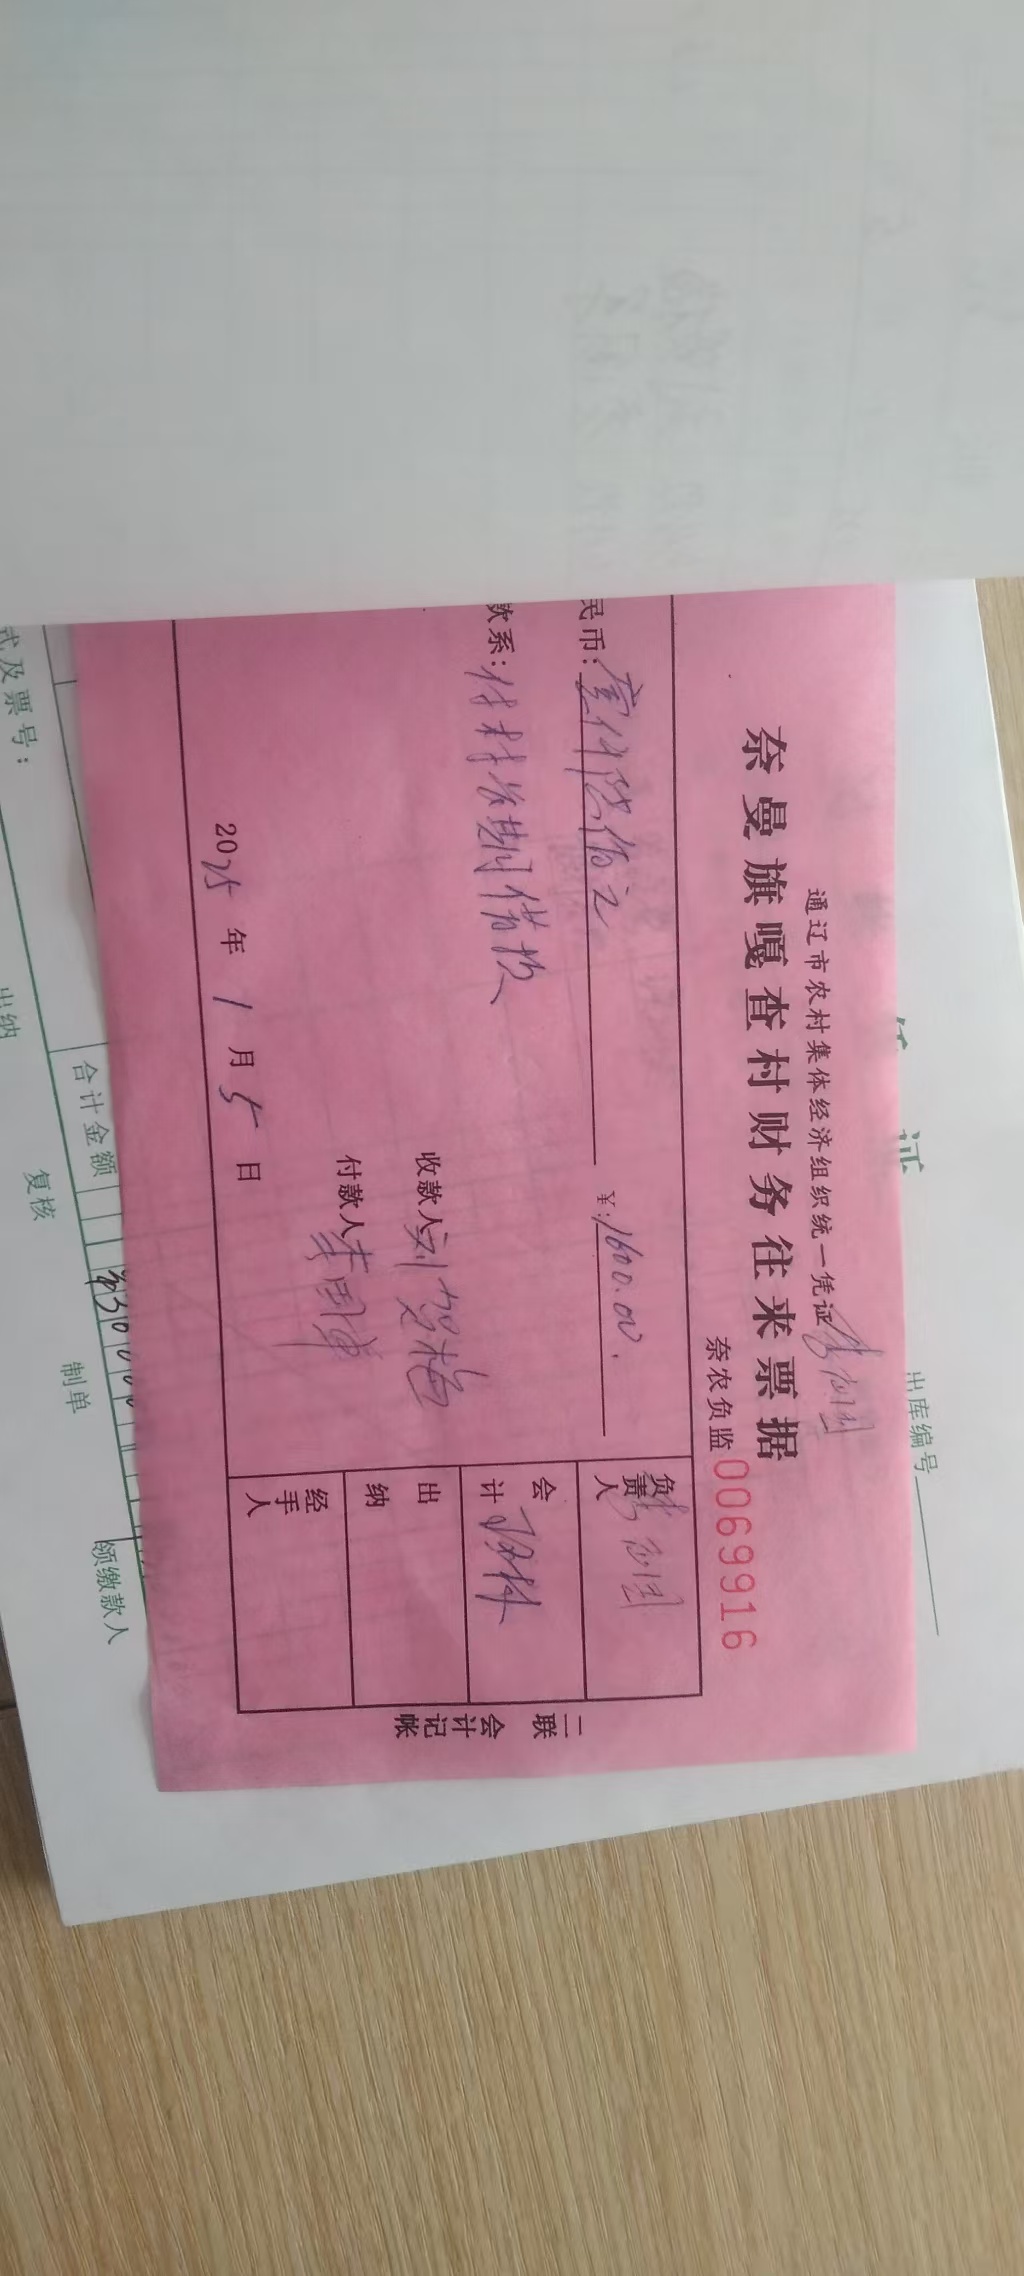 通辽市农村集体经济组织统一凭证
奈曼旗嘎查村财务往来票据
奈农负监 0069916
民币：壹仟陆佰元 ¥：1600.00
款系：付村长期借款
收款人
付款人
2025年1月5日
负责人
会计
出纳
经手人
二联 会计记帐
证
出库编号
式及票号：
合计金额
出纳
复核
制单
领缴款人